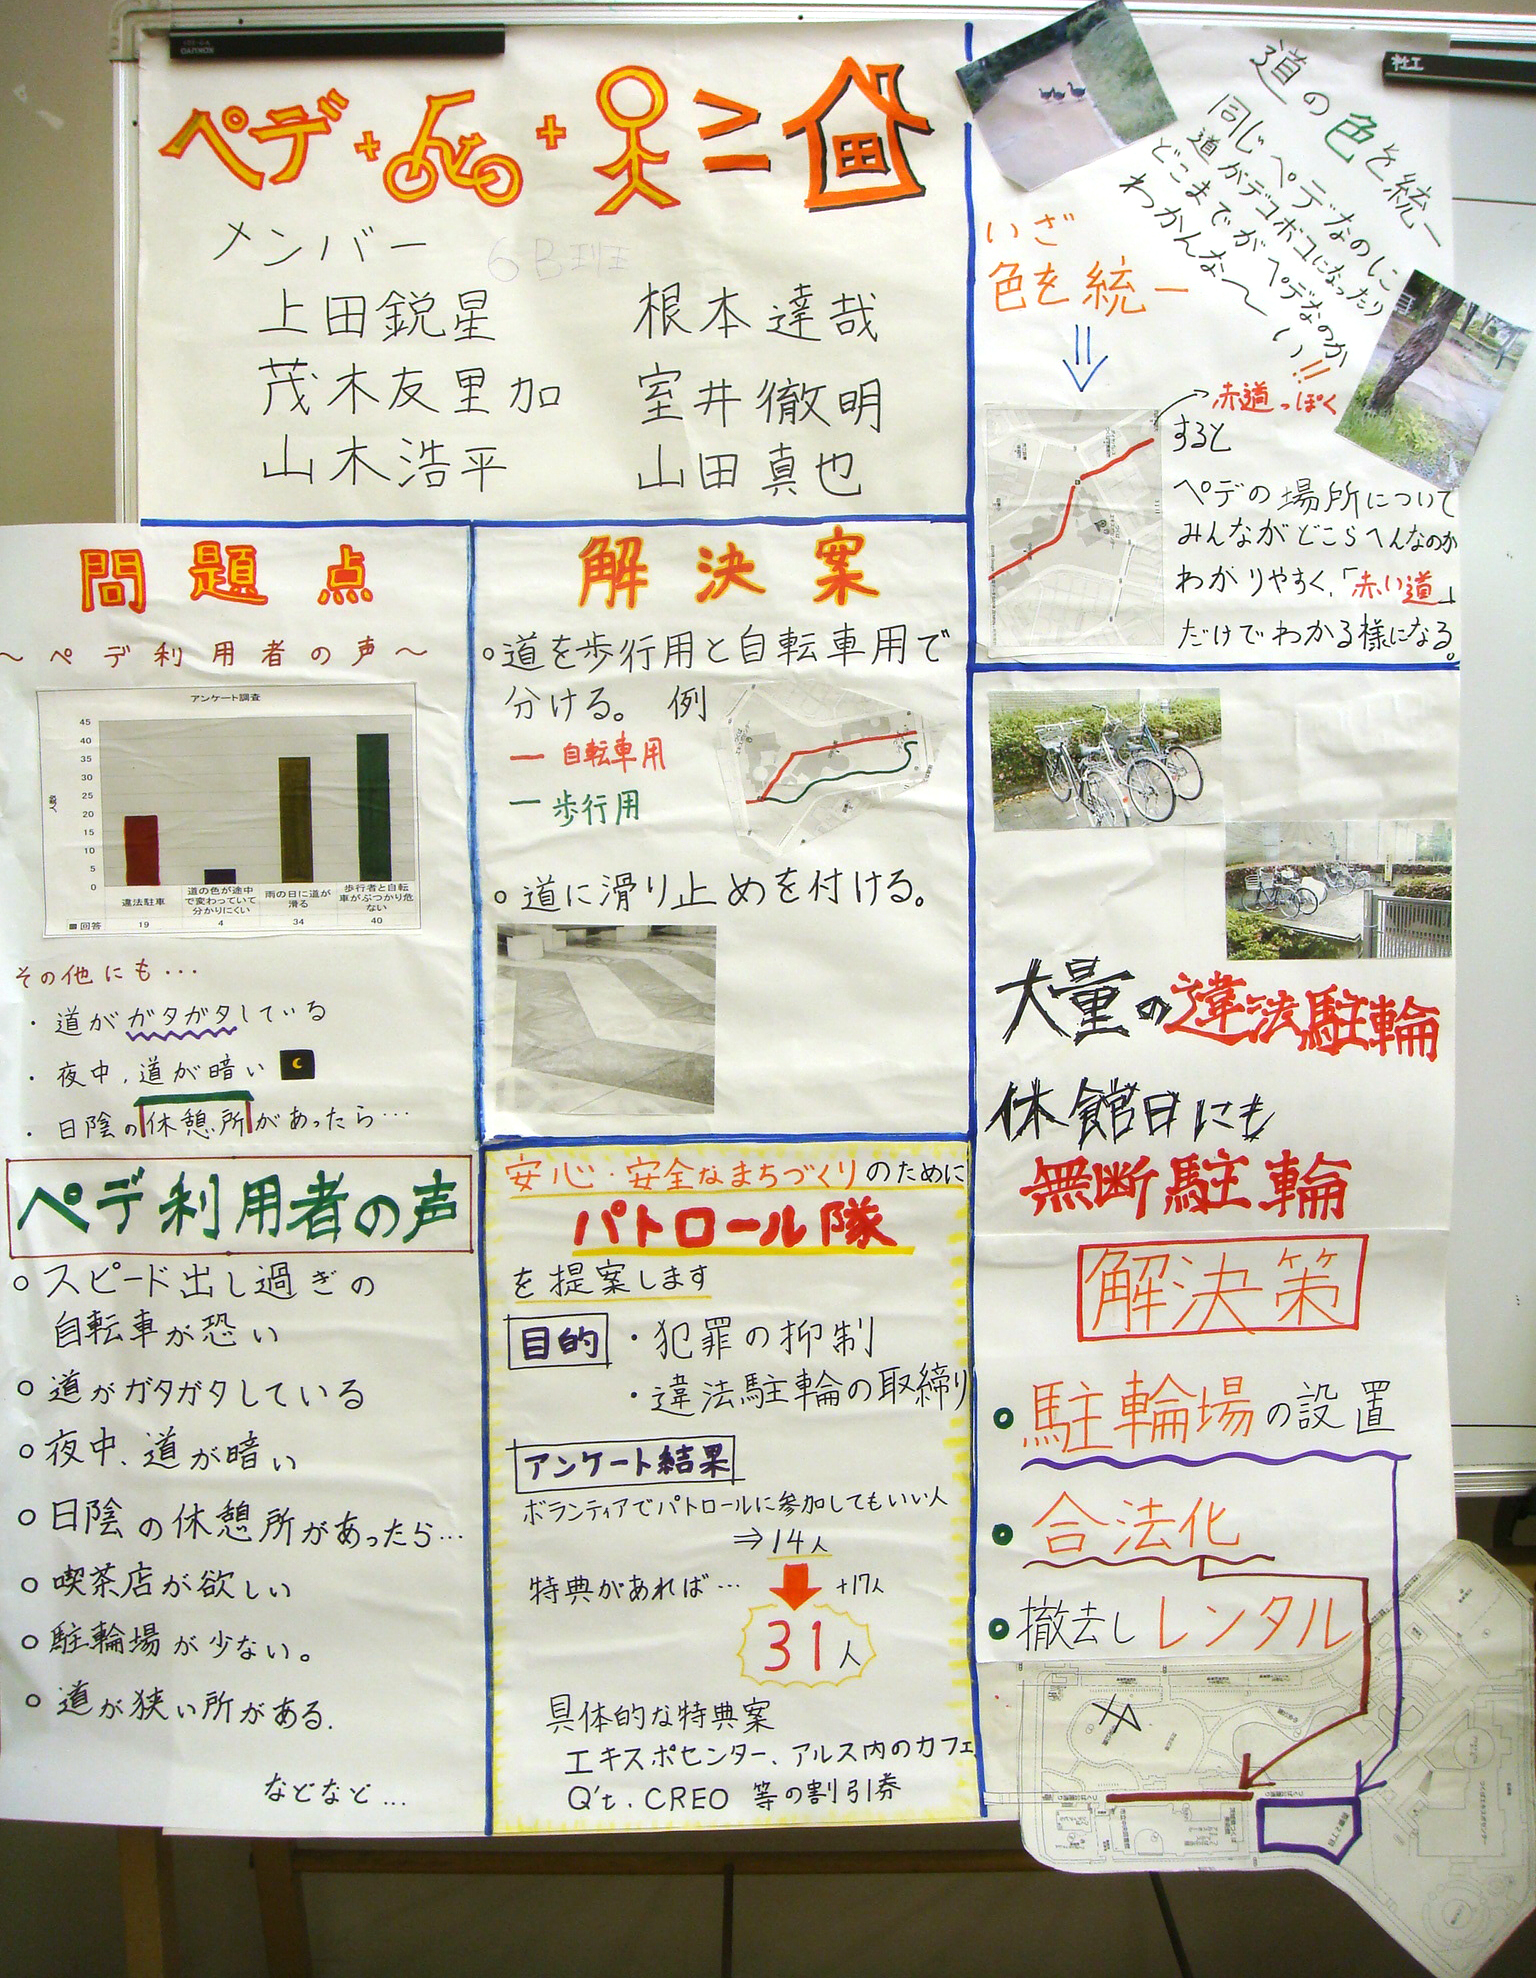 ペデ+ + =
メンバー
6B班
上田鋭星 根本達哉
茂木友里加 室井徹明
山木浩平 山田真也
道の色を統一
同じペデなのに
道がデコボコになったり
どこまでがペデなのか
わかんな〜い!!
いざ
色を統一
⇓
赤道っぽく
すると
ペデの場所について
みんながどこらへんなのか
わかりやすく、「赤い道」
だけでわかる様になる。
問題点
〜ペデ利用者の声〜
アンケート調査
人数
45
40
35
30
25
20
15
10
5
0
違法駐車 道の色が途中で変わっていて分かりにくい 雨の日に道が滑る 歩行者と自転車がぶつかり危ない
回答 19 4 34 40
その他にも…
・道がガタガタしている
・夜中、道が暗い
・日陰の休憩所があったら…
ペデ利用者の声
○スピード出し過ぎの
自転車が恐い
○道がガタガタしている
○夜中、道が暗い
○日陰の休憩所があったら…
○喫茶店が欲しい
○駐輪場が少ない。
○道が狭い所がある.
などなど…
解決案
○道を歩行用と自転車用で
分ける。 例
ー 自転車用
ー 歩行用
○道に滑り止めを付ける。
安心・安全なまちづくりのために
パトロール隊
を提案します
目的 ・犯罪の抑制
・違法駐輪の取締り
アンケート結果
ボランティアでパトロールに参加してもいい人
⇒14人
特典があれば… +17人
31人
具体的な特典案
エキスポセンター、アルス内のカフェ
Q't、CREO 等の割引券
大量の違法駐輪
休館日にも
無断駐輪
解決策
駐輪場の設置
合法化
撤去しレンタル